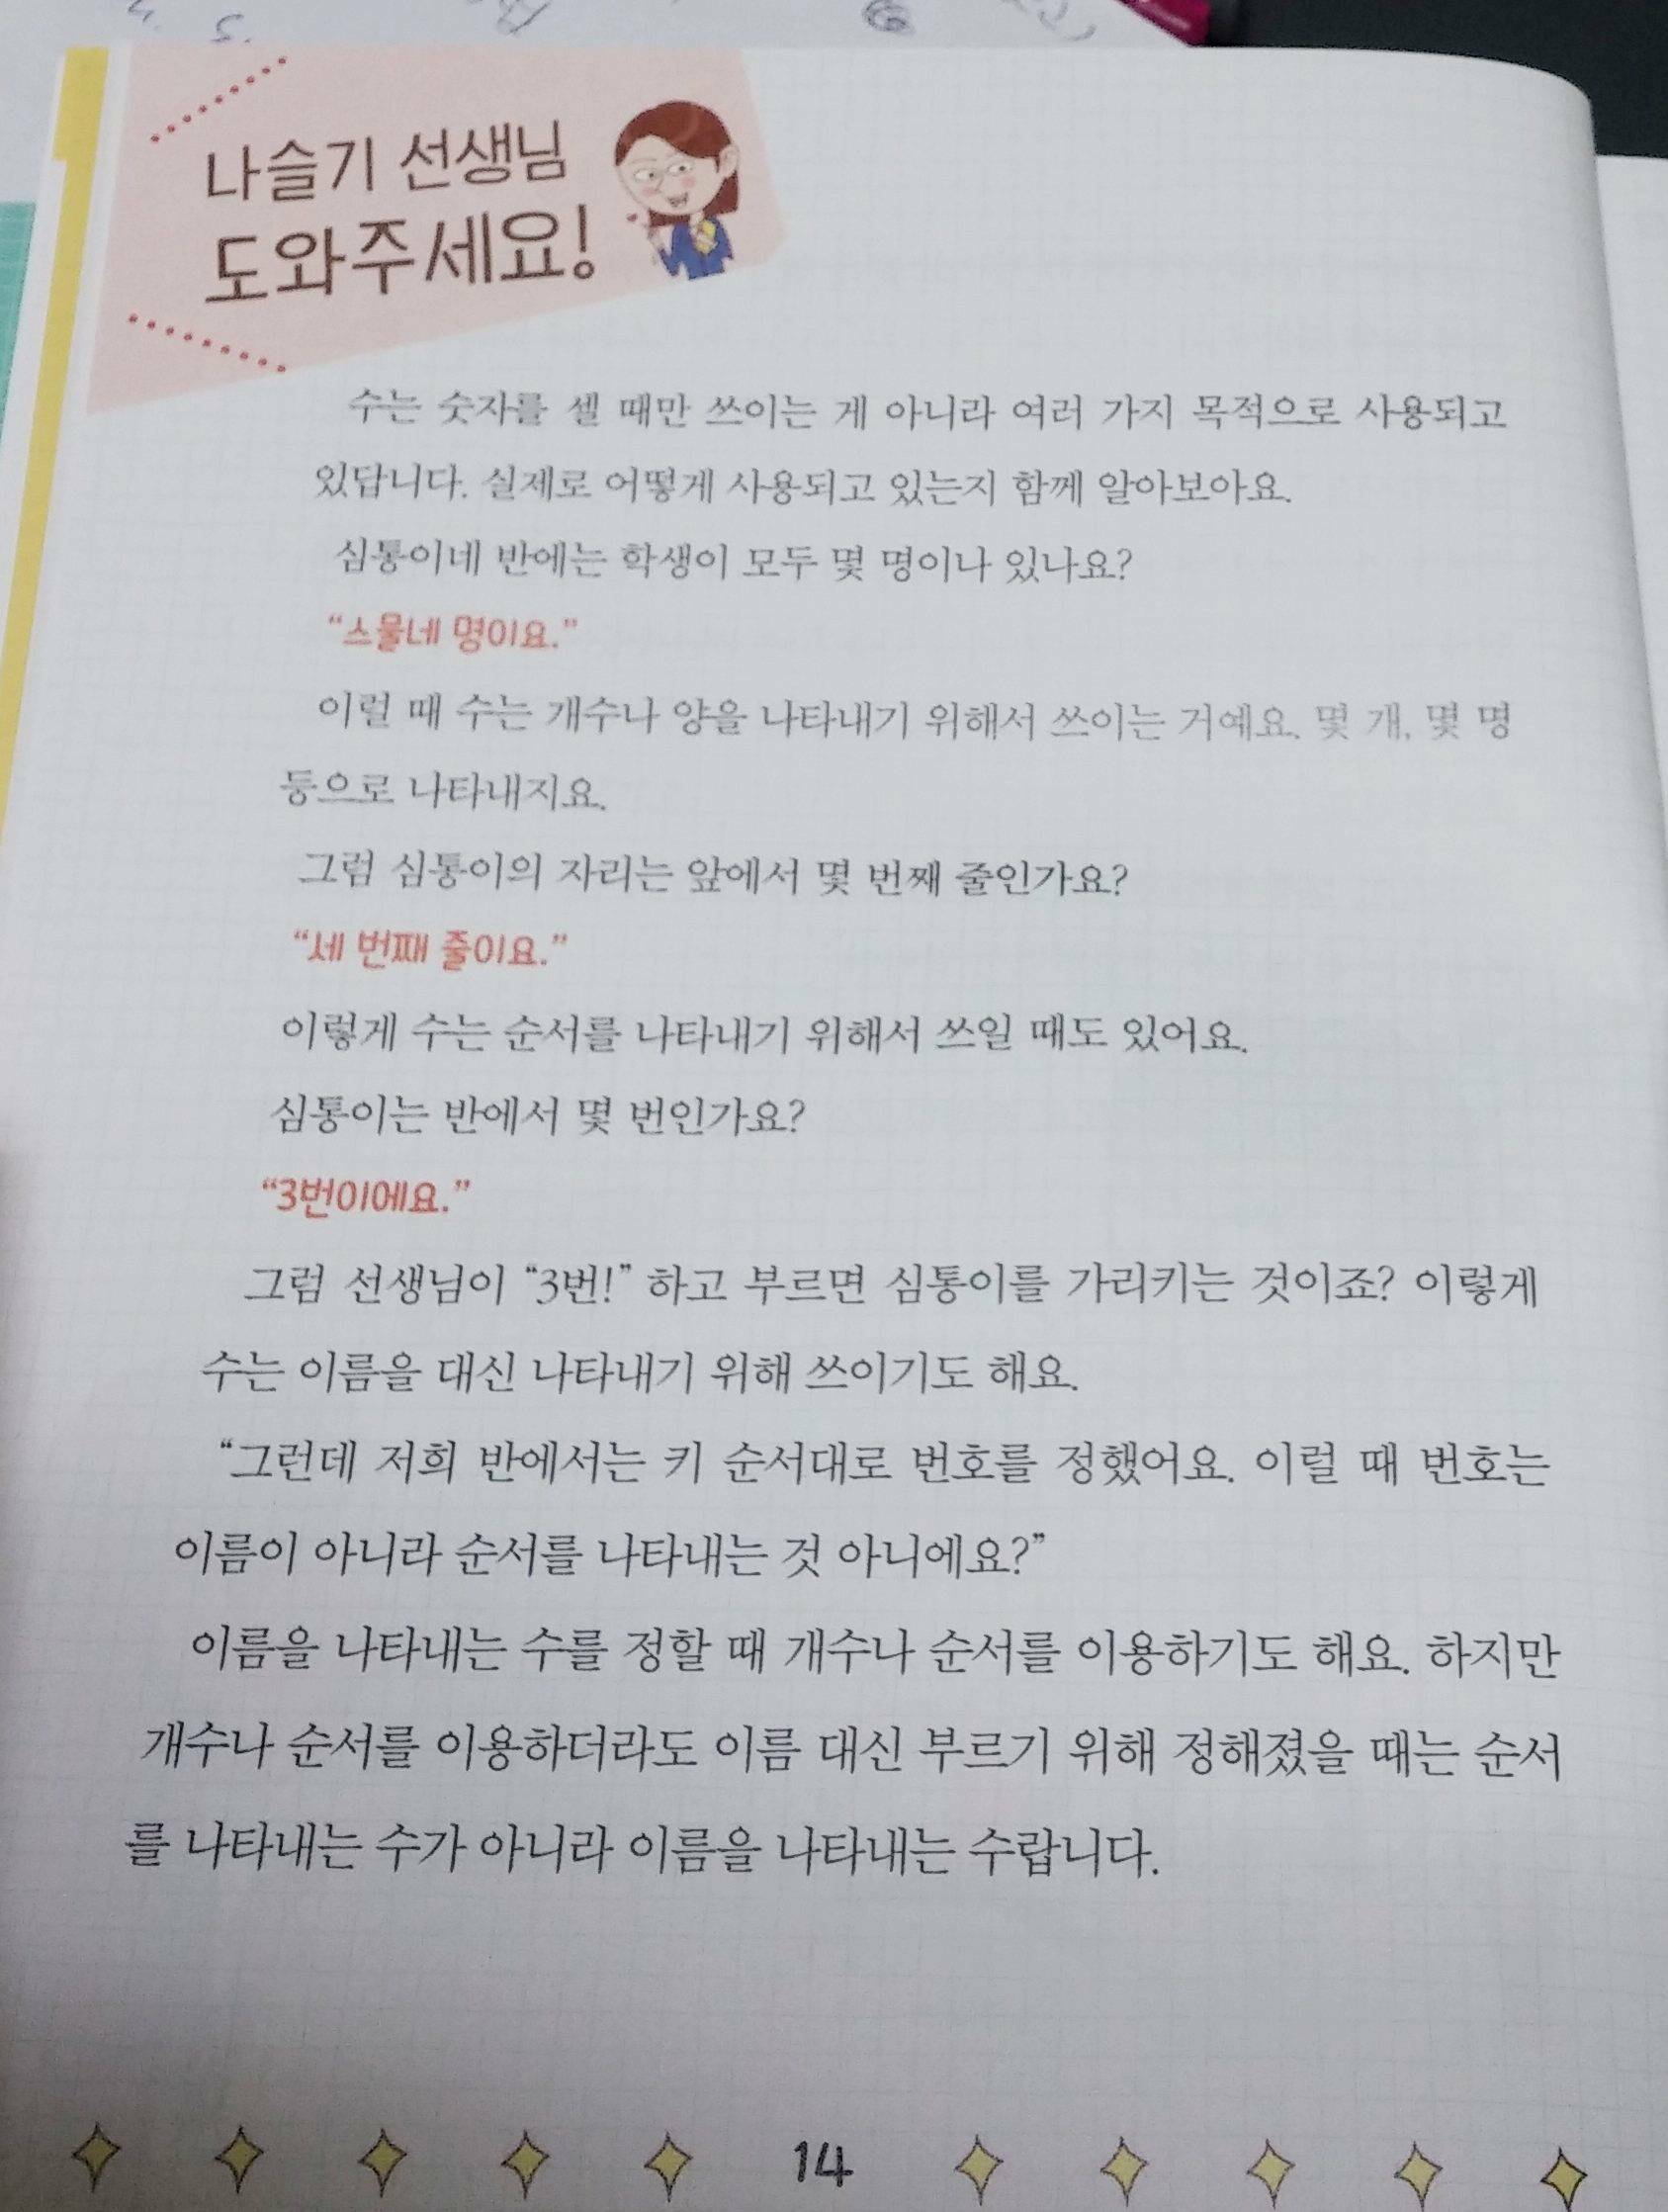 나슬기 선생님
도와주세요!
수는 숫자를 셀 때만 쓰이는 게 아니라 여러 가지 목적으로 사용되고
있답니다. 실제로 어떻게 사용되고 있는지 함께 알아보아요.
심통이네 반에는 학생이 모두 몇 명이나 있나요?
“스물네 명이요.”
이럴 때 수는 개수나 양을 나타내기 위해서 쓰이는 거예요. 몇 개, 몇 명
등으로 나타내지요.
그럼 심통이의 자리는 앞에서 몇 번째 줄인가요?
“세 번째 줄이요.”
이렇게 수는 순서를 나타내기 위해서 쓰일 때도 있어요.
심통이는 반에서 몇 번인가요?
“3번이에요.”
그럼 선생님이 “3번!” 하고 부르면 심통이를 가리키는 것이죠? 이렇게
수는 이름을 대신 나타내기 위해 쓰이기도 해요.
“그런데 저희 반에서는 키 순서대로 번호를 정했어요. 이럴 때 번호는
이름이 아니라 순서를 나타내는 것 아니에요?”
이름을 나타내는 수를 정할 때 개수나 순서를 이용하기도 해요. 하지만
개수나 순서를 이용하더라도 이름 대신 부르기 위해 정해졌을 때는 순서
를 나타내는 수가 아니라 이름을 나타내는 수랍니다.
14